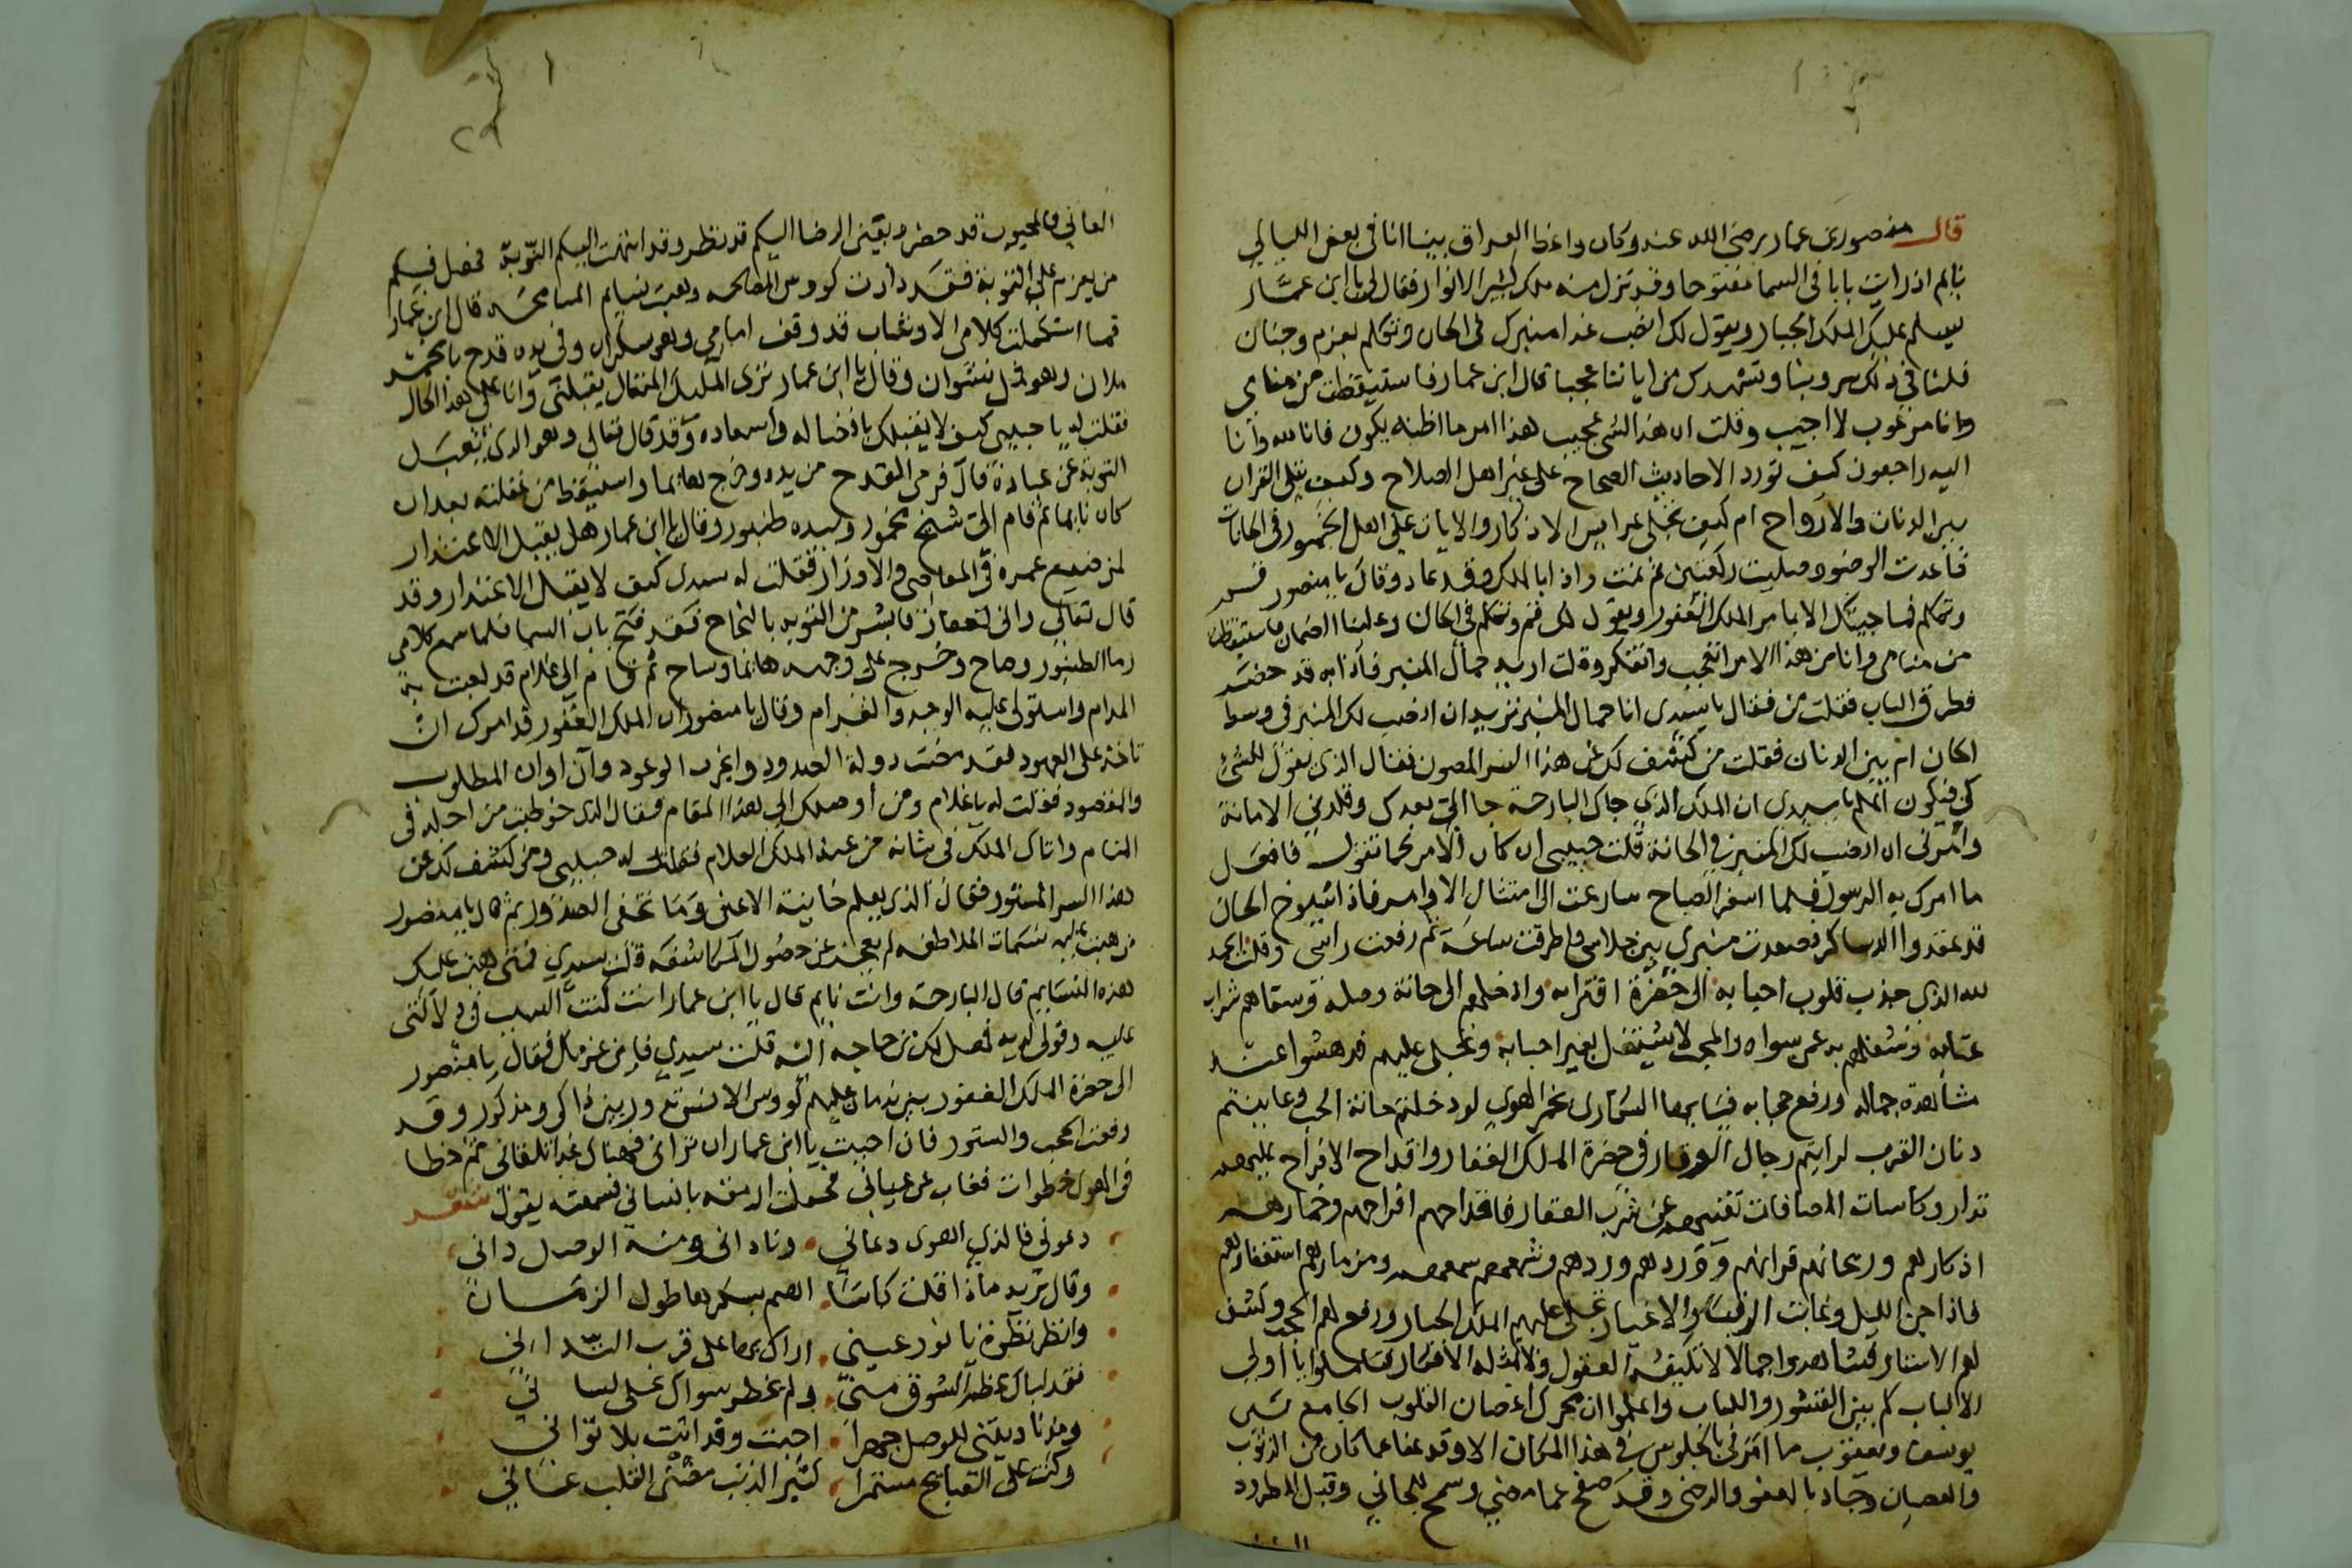 قال منصور بن عمار رضي الله عنه وكان واعظ العراق بينما انا في بعض الليالي
نايم اذ رايت بابا في السما مفتوحا وقد نزل منه ملك كثير الانوار فقال لي يا ابن عمار
يسلم عليك الملك الجبار ويقول لك انصب غدا منبرك في الحان وتكلم بعزم وجنان
فلنا في ذلك سر وبنا وتشهدك من اياتنا عجبا قال ابن عمار فاستيقظت من منامي
وانا مرعوب لا اجيب وقلت ان هذا لشي عجيب هذا امر ما اظنه يكون فانا لله وانا
اليه راجعون كيف تورد الاحاديث الصحاح على غير اهل الصلاح وكيف يتلى القران
بين الدنان والارواح ام كيف تجلى عرايس الاذكار والايات على اهل الخمور في الحانات
فاعدت الوضو وصليت ركعتين ثم نمت واذا بالملك وقد عاد وقال يا منصور قم
وتكلم فما جيتك الا بامر الملك الغفور ويقول لك قم وتكلم في الحان وعلينا الضمان فاستيقظت
من منامي وانا من هذا الامر اتعجب واتفكر وقلت اريد حمال المنبر فاذا به قد حضر
وطرق الباب فقلت من فقال يا سيدي انا حمال المنبر تريد ان انصب لك المنبر في وسط
الحان ام بين الدنان فقلت من كشف لك عن هذا السر المصون فقال الذي يقول للشي
كن فيكون اعلم يا سيدي ان الملك الذي جاك البارحة جا الي بعدك وقلدني الامانة
وامرني ان انصب لك المنبر في الحانة قلت حبيبي ان كان الامر كما تقول فافعل
ما امرك به الرسول فلما اسفر الصباح سارعت الى امتثال الاوامر فاذا شيوخ الحان
قد عقدوا الدساكر فصعدت منبري بين جلاسي واطرقت ساعة ثم رفعت راسي وقلت الحمد
لله الذي جذب قلوب احبابه الى حضرة اقترابه وادخلهم الى حانة وصله وسقاهم شراب
عتابه وشغلهم به عمن سواه والمحب لا يشتغل بغير احبابه وتجلى عليهم فدهشوا عند
مشاهدة جماله ورفع حجابه فيا ايها السكارى بخمر الهوى لو دخلتم حانة الحب وعاينتم
دنان القرب لرايتم رجال الوقار في حضرة الملك الغفار واقداح الافراح عليهم
تدار وكاسات المصافات تغنيهم عن شرب العقار فاقداحهم افراحهم وخمارهم
اذكارهم وريحانهم قرانهم ووردهم وردهم وشمعهم سمعهم ومزمارهم استغفارهم
فاذا جن الليل وغابت الرقبا والاغيار تجلى عليهم الملك الجبار ورفع لهم الحجب وكشف
لهم الاستار فشاهدوا جمالا لا تكيفه العقول ولا تمثله الافكار فتاملوا يا اولي
الالباب كم بين القشور واللباب واعلموا ان محرك اغصان القلوب الجامع شمل
يوسف ويعقوب ما امرني بالجلوس في هذا المكان الا وقد عفا عما كان من الذنوب
والعصيان وجاد بالعفو والرضى وقد صفح عما مضى وسمح للجاني وقبل المطرود
٢٩
العاني والمحبوب قد حضر وبعين الرضا اليكم قد نظر وقد انتهت اليكم التوبة فهل فيكم
من يعزم على التوبة فقد دارت كووس المصالحه وهبت نسايم المسامحه قال ابن عمار
فما استكملت كلامي الا وشاب قد وقف امامي وهو سكران وفي يده قدح بالخمر
ملان وهو ثمل نشوان وقال يا ابن عمار ترى الملك المتعال يقبلني وانا على هذا الحال
فقلت له يا حبيبي كيف لا يقبلك بافضاله واسعاده وقد قال تعالى وهو الذي يقبل
التوبة عن عباده قال فرمى القدح من يده وخرج هايما واستيقظ من غفلته بعد ان
كان نايما ثم قام الي شيخ مخمور وبيده طنبور وقال يا ابن عمار هل يقبل الاعتذار
لمن ضيع عمره في المعاصي والاوزار فقلت له سيدي كيف لا يقبل الاعتذار وقد
قال تعالى واني لغفار فابشر من التوبه بالنجاح فقد فتح باب السما فلما سمع كلامي
رما الطنبور وصاح وخرج على وجهه هايما وساح ثم قام الي غلام قد لعبت به
المدام واستولى عليه الوجد والغرام وقال يا منصور ان الملك الغفور قد امرك ان
تاخذ على العهود فقد مضت دولة الصدود وانجزت الوعود وآن اوان المطلوب
والمقصود فقلت له يا غلام ومن اوصلك الى هذا المقام فقال الذي خوطبت من اجله في
المنام واتاك الملك في شانه من عند الملك العلام فقلت له حبيبي ومن كشف لك عن
هذا السر المستور فقال الذي يعلم خاينة الاعين وما تخفى الصدور ثم قال يا منصور
من هبت عليه نسمات الملاطفه لم يعجز عن حصول المكاشفه قلت سيدي فمتى هبت عليك
هذه النسايم قال البارحة وانت نايم قال يا ابن عمار انت كنت السبب في دلالتي
عليه وقولي لديه فهل لك من حاجه اليه قلت سيدي فاين عزمك فقال يا منصور
الى حضرة الملك الغفور بين ندمان عليهم كووس الانس تدور بين ذاكر ومذكور وقد
رفعت الحجب والستور فان احببت يا ابن عمار ان تراني فهناك غدا تلقاني ثم خطا
في الهوا خطوات فغاب عن عياني فجعلت ارمقه بانساني فسمعته يقول شعر
دعوني فالذي اهوى دعاني وناداني ومنه الوصل داني
وقال تريد ماذا قلت كاسا اهيم بسكرها طول الزمان
وانظر نظرة يا نور عيني اراك بها على قرب التداني
فقد لباك عظم الشوق مني ولم يخطر سواك على لساني
ومذ ناديتني للوصل جهرا اجبت وقد اتيت بلا تواني
وكنت على القبايح مستمرا كثير الذنب مفتتن القلب عاني